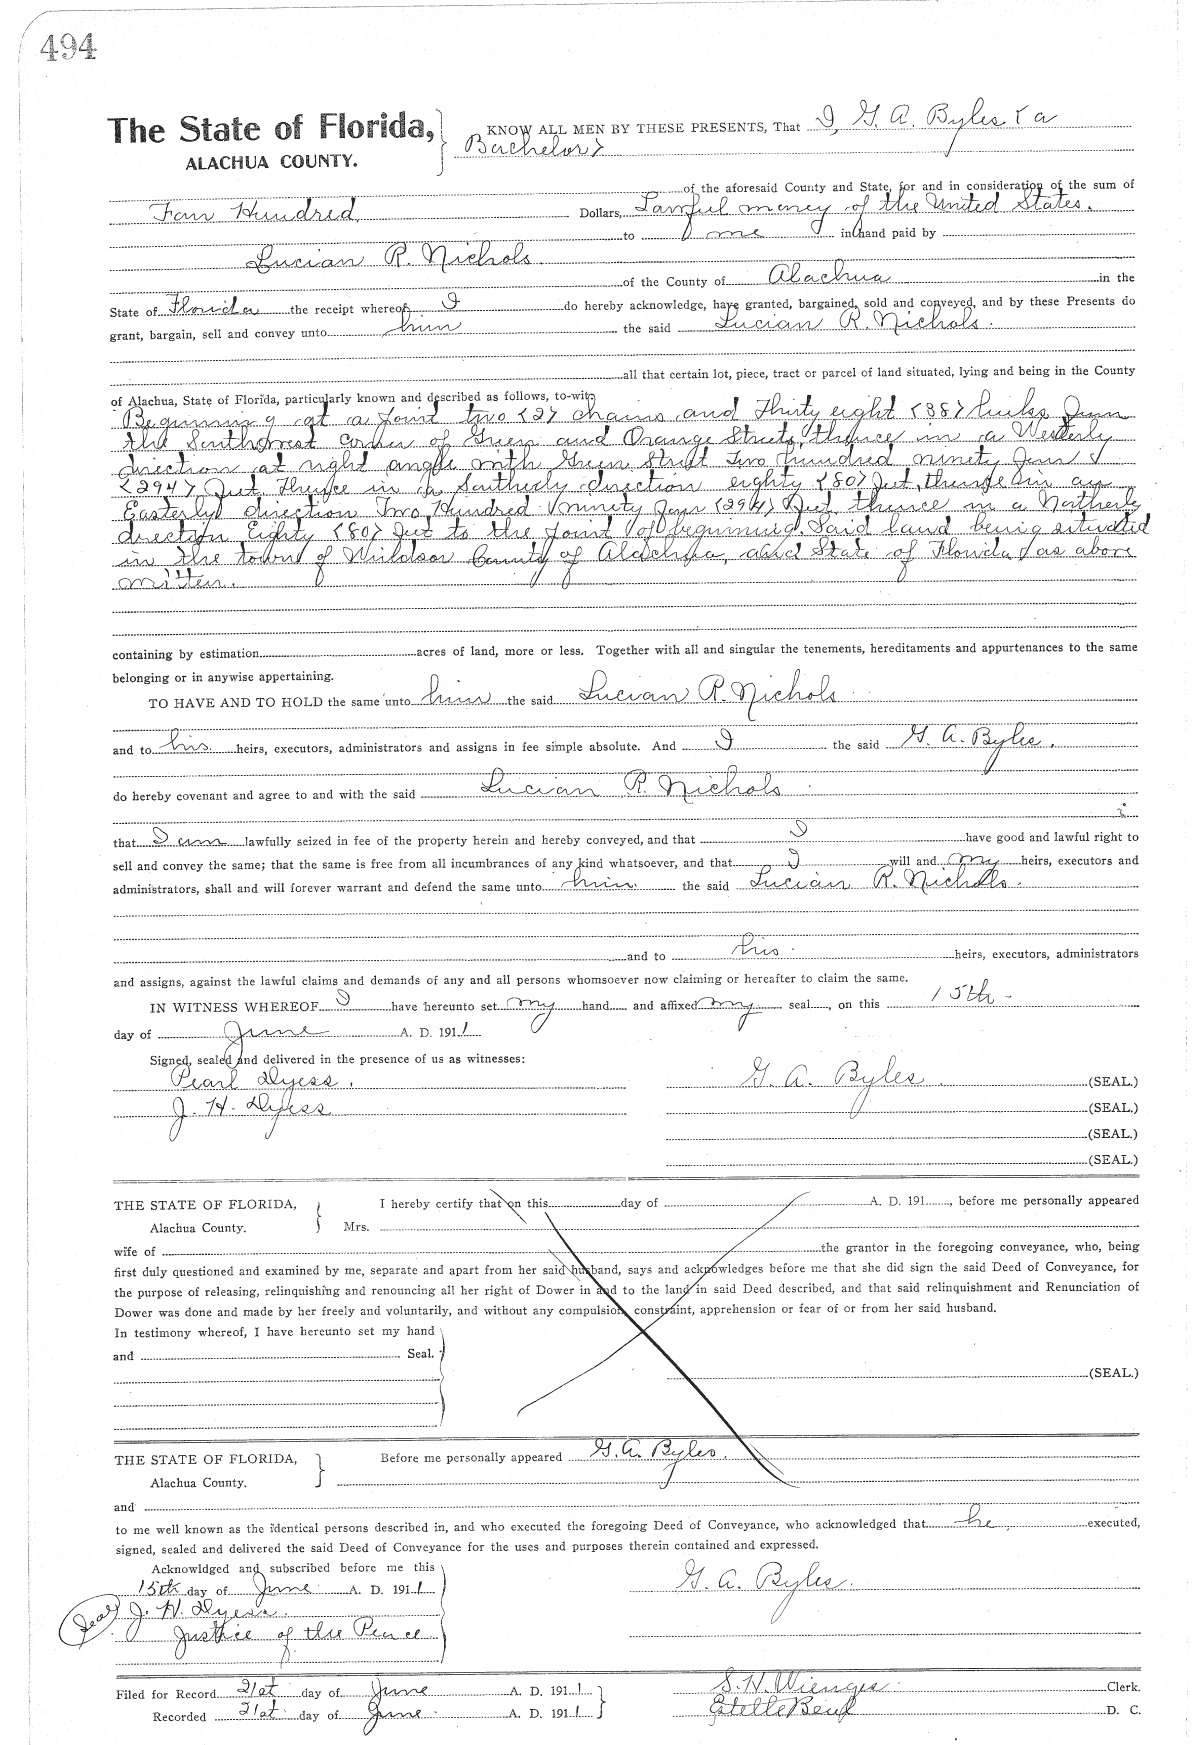 494
The State of Florida,
ALACHUA COUNTY.
KNOW ALL MEN BY THESE PRESENTS, That I, G. A. Byles (a
Bachelor)
of the aforesaid County and State, for and in consideration of the sum of
Four Hundred Dollars, Lawful money of the United States.
to me in hand paid by
Lucian R. Nichols.
of the County of Alachua in the
State of Florida the receipt whereof I do hereby acknowledge, have granted, bargained, sold and conveyed, and by these Presents do
grant, bargain, sell and convey unto him the said Lucian R. Nichols.
all that certain lot, piece, tract or parcel of land situated, lying and being in the County
of Alachua, State of Florida, particularly known and described as follows, to-wit:
Beginning at a point two (2) chains and Thirty eight (38) links from
the Southwest corner of Green and Orange Streets, thence in a Westerly
direction at right angle with Green Street Two hundred ninety four
(294) feet thence in a Southerly direction eighty (80) feet, thence in an
Easterly direction Two Hundred ninety four (294) feet thence in a Northerly
direction Eighty (80) feet to the point of beginning. Said land being situated
in the town of Windsor County of Alachua, and State of Florida as above
written.
containing by estimation acres of land, more or less. Together with all and singular the tenements, hereditaments and appurtenances to the same
belonging or in anywise appertaining.
TO HAVE AND TO HOLD the same unto him the said Lucian R. Nichols
and to his heirs, executors, administrators and assigns in fee simple absolute. And I the said G. A. Byles.
do hereby covenant and agree to and with the said Lucian R. Nichols
that I am lawfully seized in fee of the property herein and hereby conveyed, and that I have good and lawful right to
sell and convey the same; that the same is free from all incumbrances of any kind whatsoever, and that I will and my heirs, executors and
administrators, shall and will forever warrant and defend the same unto him the said Lucian R. Nichols.
and to his heirs, executors, administrators
and assigns, against the lawful claims and demands of any and all persons whomsoever now claiming or hereafter to claim the same.
IN WITNESS WHEREOF I have hereunto set my hand and affixed my seal, on this 15th
day of June A. D. 1911
Signed, sealed and delivered in the presence of us as witnesses:
Pearl Dyess. G. A. Byles (SEAL.)
J. H. Dyess (SEAL.)
(SEAL.)
(SEAL.)
THE STATE OF FLORIDA, I hereby certify that on this day of A. D. 191 , before me personally appeared
Alachua County. Mrs.
wife of the grantor in the foregoing conveyance, who, being
first duly questioned and examined by me, separate and apart from her said husband, says and acknowledges before me that she did sign the said Deed of Conveyance, for
the purpose of releasing, relinquishing and renouncing all her right of Dower in and to the land in said Deed described, and that said relinquishment and Renunciation of
Dower was done and made by her freely and voluntarily, and without any compulsion, constraint, apprehension or fear of or from her said husband.
In testimony whereof, I have hereunto set my hand
and Seal.
(SEAL.)
THE STATE OF FLORIDA, Before me personally appeared G. A. Byles.
Alachua County.
and
to me well known as the identical persons described in, and who executed the foregoing Deed of Conveyance, who acknowledged that he executed,
signed, sealed and delivered the said Deed of Conveyance for the uses and purposes therein contained and expressed.
Acknowldged and subscribed before me this
15th day of June A. D. 1911 G. A. Byles.
Seal J. H. Dyess.
Justice of the Peace
Filed for Record 21st day of June A. D. 1911 S. H. Wienges Clerk.
Recorded 21st day of June A. D. 1911 Estelle D. C.